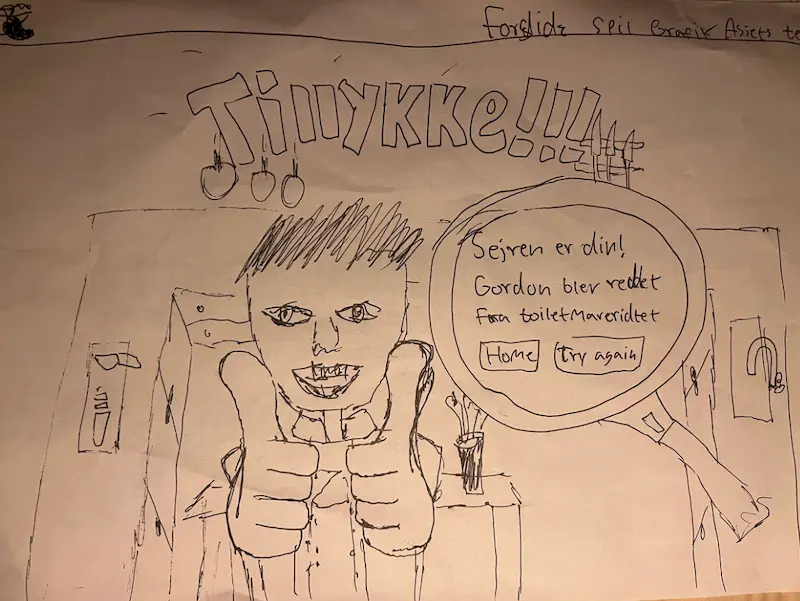 Forside Spil Grafik Assets te
Tillykke!!!
Sejren er din!
Gordon blev reddet
fra toiletmareridtet
Home
Try again